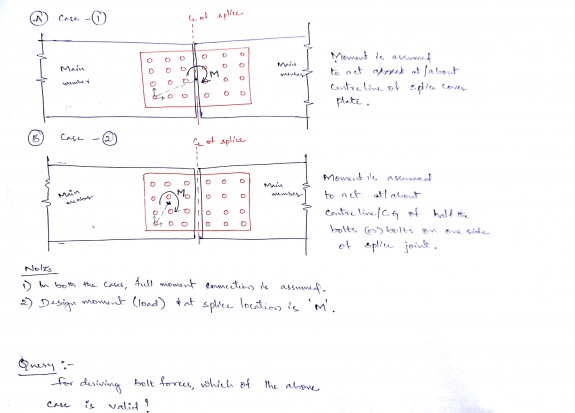 Ⓐ Case - ①
CL of splice
Main member
M
Main member
Moment is assumed
to act at/about
centre line of splice cover
plate.
Ⓑ Case - ②
CL of splice
Main member
M
Main member
Moment is assumed
to act at/about
centre line/CG of half the
bolts (or) bolts on one side
of splice joint.
Notes
1) In both the cases, full moment connection is assumed.
2) Design moment (load) at splice location is 'M'.
Query :-
for deriving bolt forces, which of the above
case is valid?